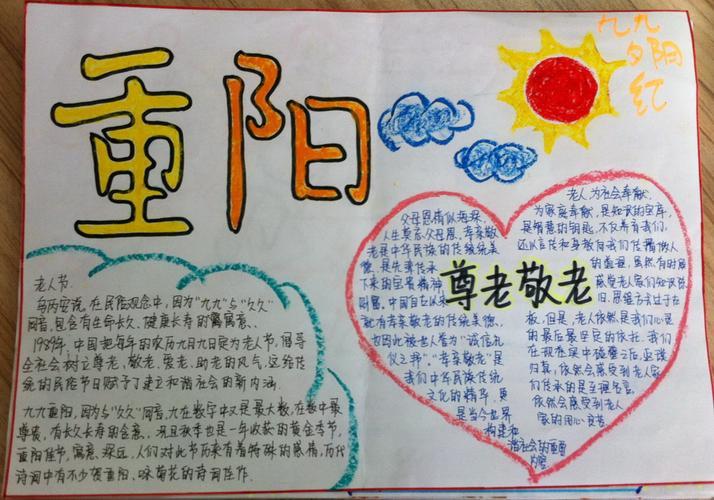 重阳
九九
夕阳
红
老人节
乌丙安说,在民俗观念中,因为"九九"与"久久"
同音,包含有生命长久、健康长寿的寓寓意、
1989年,中国把每年的农历九月九日定为老人节,倡导
全社会树立尊老,敬老、爱老、助老的风气,这给传
统的民俗节日赋予了建立和谐社会的新内涵.
九九重阳,因为与"久久"同音,九在数字中又是最大数,在数中最
尊贵,有长久长寿的含意,况且秋季也是一年收获的黄金季节,
重阳佳节,寓意深远,人们对此节历来有着特殊的感情,历代
诗词中有不少贺重阳、咏菊花的诗词佳作.
尊老敬老
父母恩情似海深,
人生莫忘父母恩,孝亲敬
老是中华民族的传统美
德,是先辈传承
下来的宝贵精神
财富,中国自古以来
就有孝亲敬老的传统美德、
也因此被世人誉为"诚信礼
仪之邦"."孝亲敬老"是
我们中华民族传统
文化的精华,更
是当今世界
构建和
谐社会的重要
内容
老人,为社会奉献,
为家庭奉献,是知识的宝库,
是智慧的钥匙,不仅养育我们,
还以言传和身教向我们传播做人
的道理,虽然,有时感
觉老人家们知识陈
旧,思维方式过于古
板,但是,老人依然是我们心灵
的最后最坚定的依托,我们
在现实中碰壁之后,返璞
归真,依然会感受到老人家
们传承的是至理名言,
依然会感受到老人
家的用心良苦